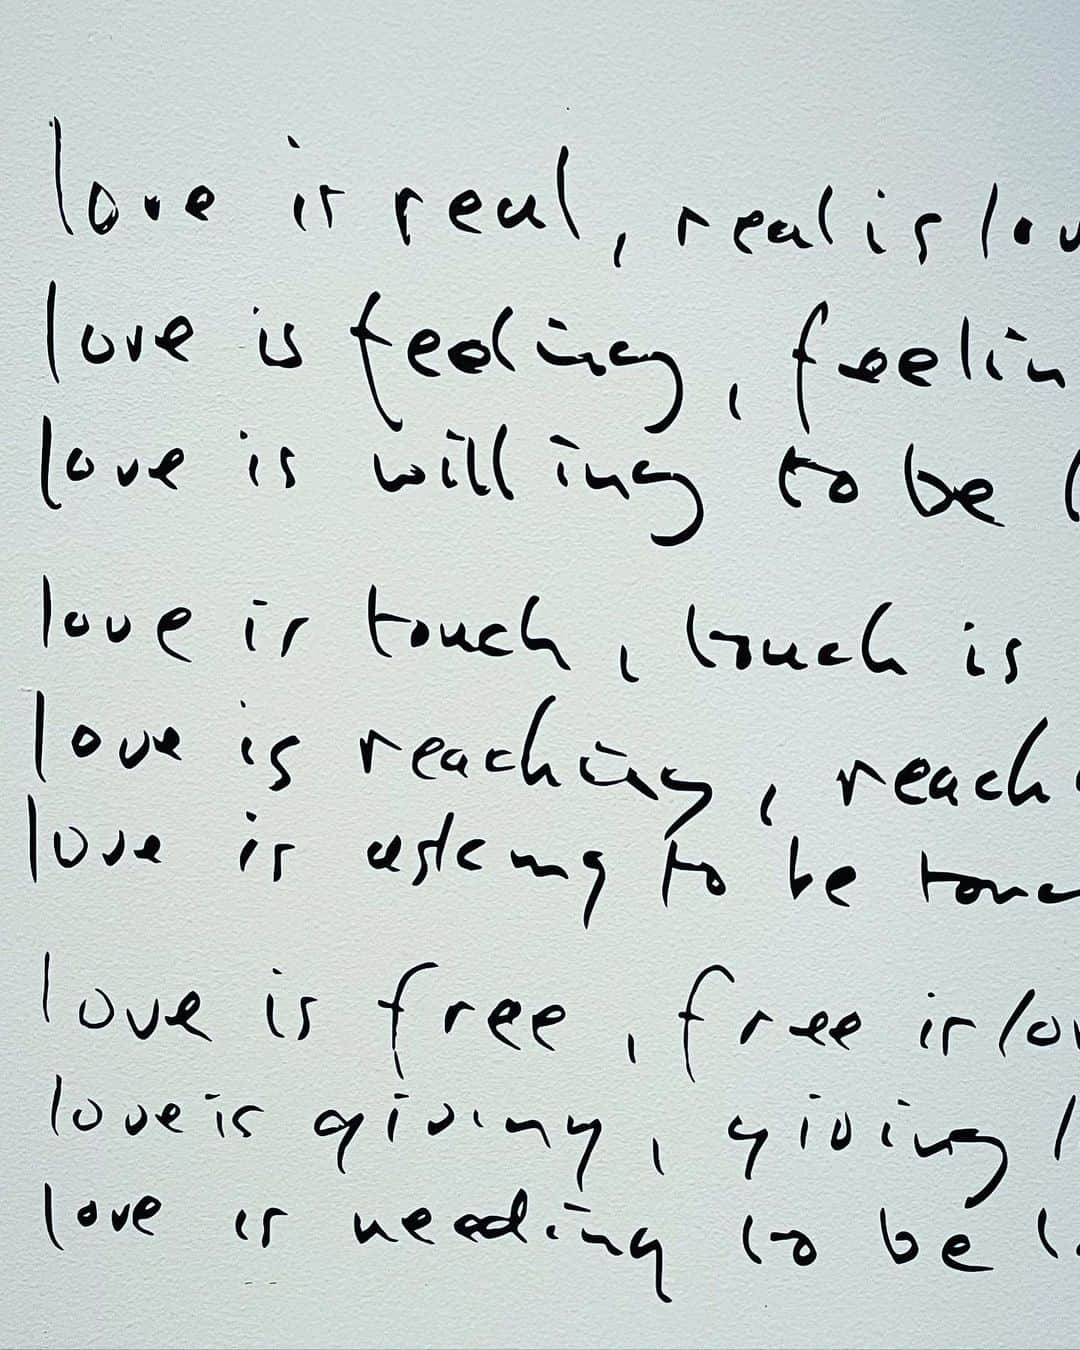 love is real, real is lov
love is feeling, feelin
love is willing to be l
love is touch, touch is
love is reaching, reach
love is asking to be touc
love is free, free is lov
love is giving, giving l
love is needing to be l